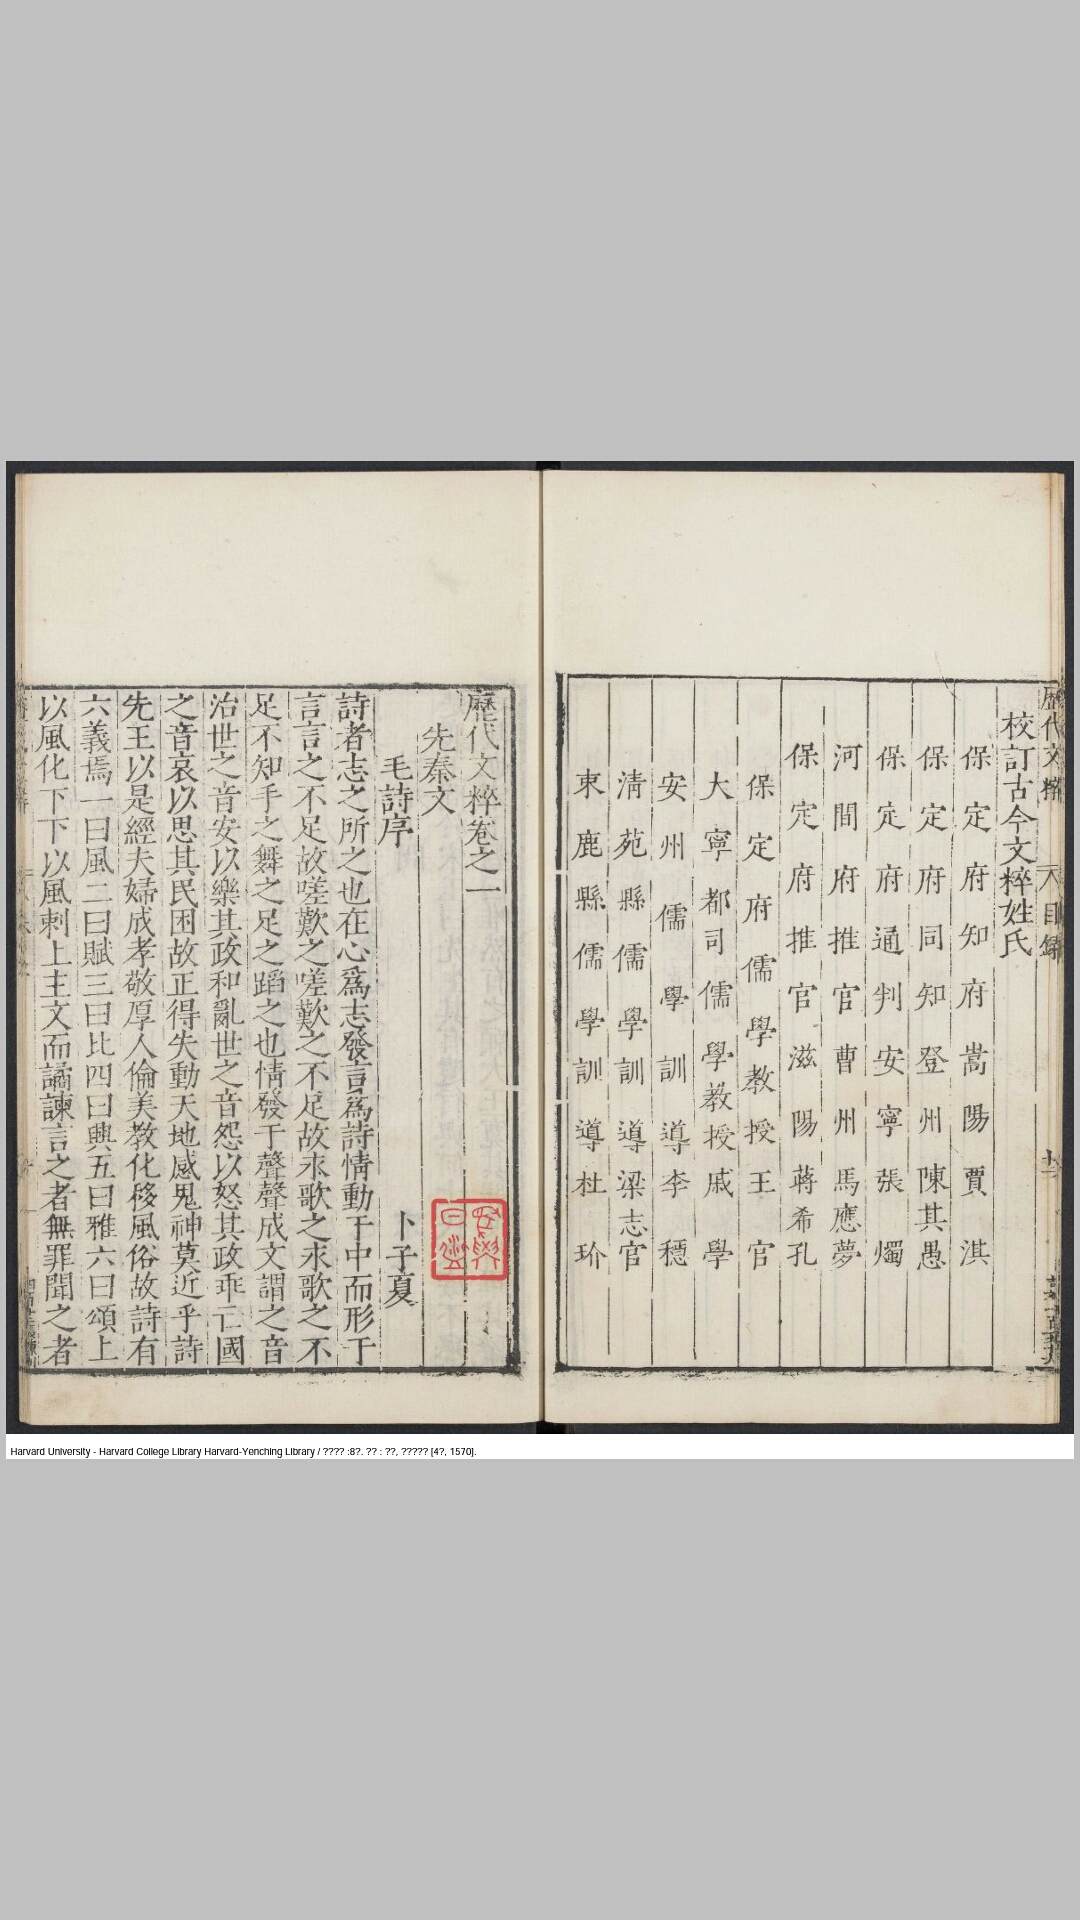 歷代文粹
目錄
校訂古今文粹姓氏
保定府知府嵩陽賈淇
保定府同知登州陳其愚
保定府通判安寧張燭
河間府推官曹州馬應夢
保定府推官滋陽蔣希孔
保定府儒學教授王官
大寧都司儒學教授戚學
安州儒學訓導李穩
淸苑縣儒學訓導梁志官
束鹿縣儒學訓導杜玠
歷代文粹卷之一
先秦文
毛詩序 卜子夏
詩者志之所之也在心爲志發言爲詩情動于中而形于
言言之不足故嗟歎之嗟歎之不足故永歌之永歌之不
足不知手之舞之足之蹈之也情發于聲聲成文謂之音
治世之音安以樂其政和亂世之音怨以怒其政乖亡國
之音哀以思其民困故正得失動天地感鬼神莫近乎詩
先王以是經夫婦成孝敬厚人倫美教化移風俗故詩有
六義焉一曰風二曰賦三曰比四曰興五曰雅六曰頌上
以風化下下以風刺上主文而譎諫言之者無罪聞之者
Harvard University - Harvard College Library Harvard-Yenching Library / ???? :8?. ?? : ??, ????? [4?, 1570].